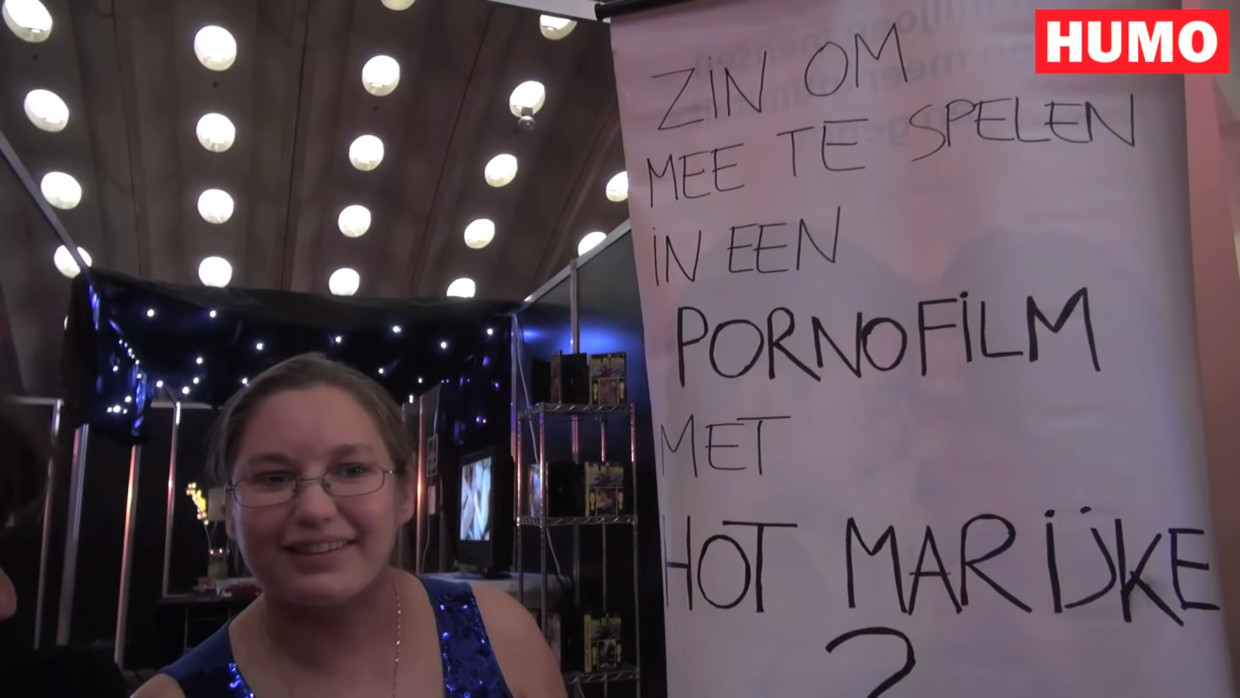 HUMO
ZIN OM
MEE TE SPELEN
IN EEN
PORNOFILM
MET
HOT MARIJKE
?